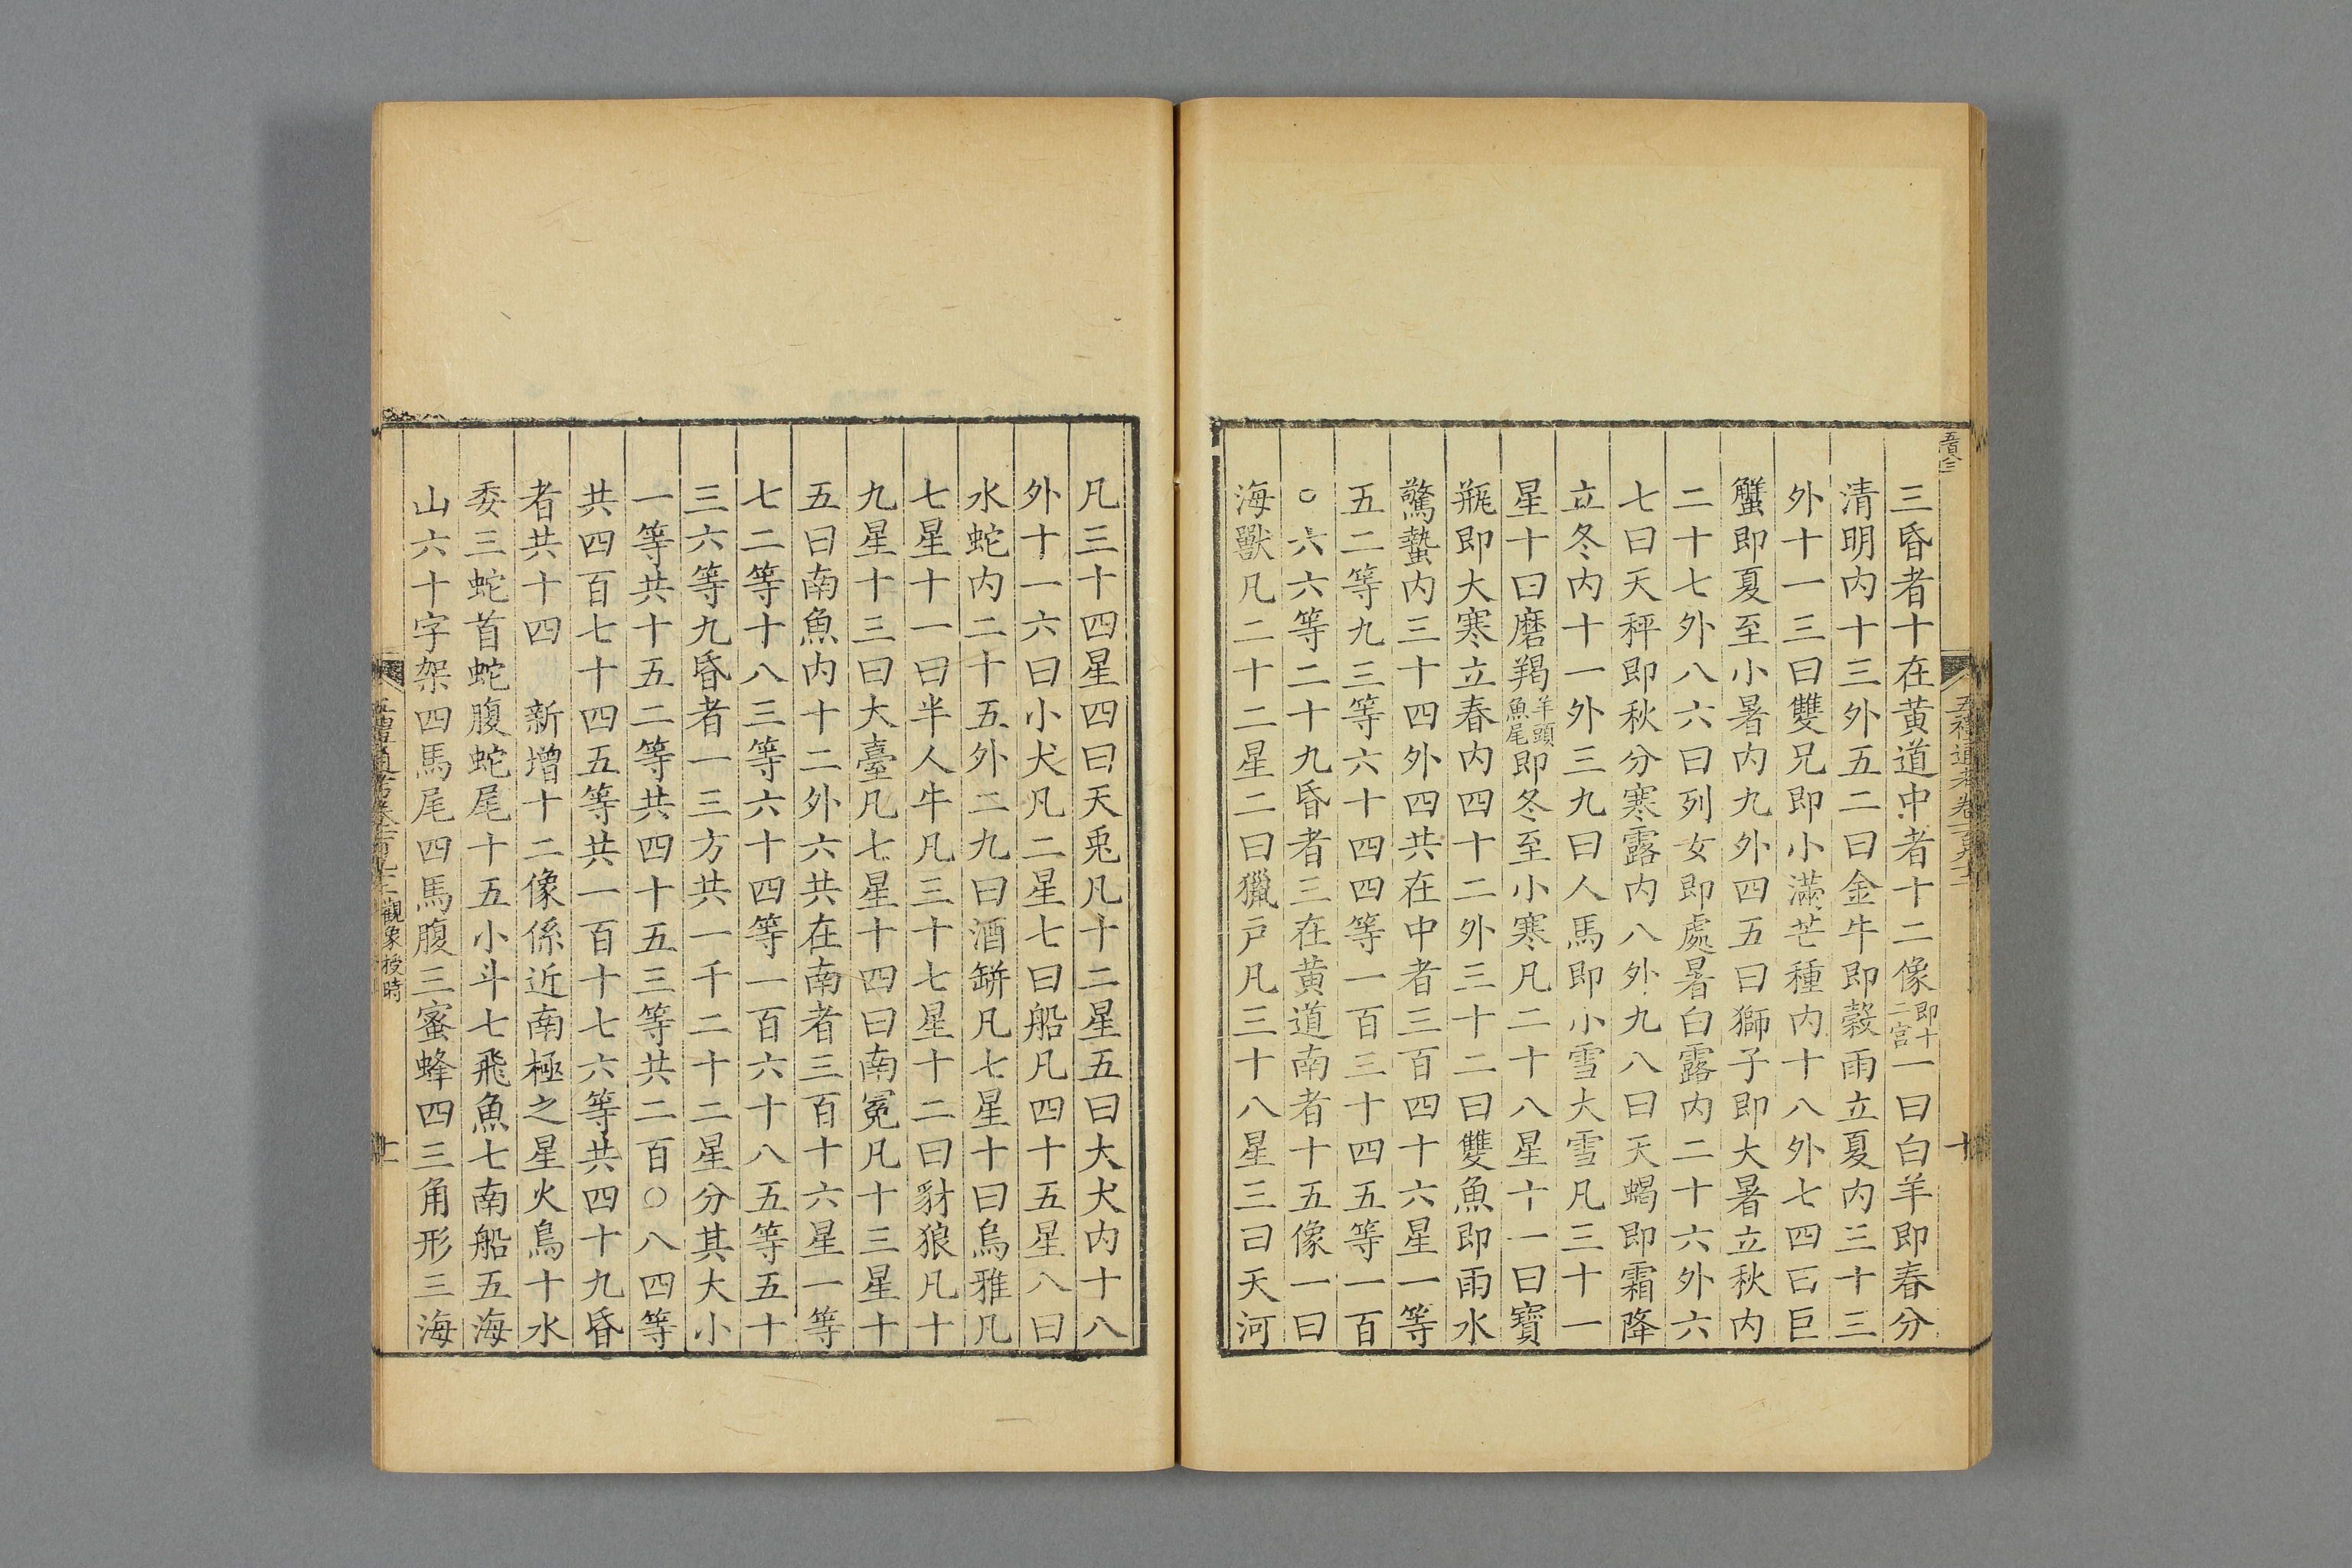 三昏者十在黄道中者十二像即十二宮一曰白羊即春分
清明内十三外五二曰金牛即穀雨立夏内三十三
外十一三曰雙兄即小滿芒種内十八外七四曰巨
蟹即夏至小暑内九外四五曰獅子即大暑立秋内
二十七外八六曰列女即處暑白露内二十六外六
七曰天秤即秋分寒露内八外九八曰天蝎即霜降
立冬内十一外三九曰人馬即小雪大雪凡三十一
星十曰磨羯羊頭魚尾即冬至小寒凡二十八星十一曰寶
瓶即大寒立春内四十二外三十二曰雙魚即雨水
驚蟄内三十四外四共在中者三百四十六星一等
五二等九三等六十四四等一百三十四五等一百
○六六等二十九昏者三在黄道南者十五像一曰
海獸凡二十二星二曰獵戸凡三十八星三曰天河
五禮通考卷一百九十二
十
凡三十四星四曰天兎凡十二星五曰大犬内十八
外十一六曰小犬凡二星七曰船凡四十五星八曰
水蛇内二十五外二九曰酒缾凡七星十曰烏雅凡
七星十一曰半人牛凡三十七星十二曰豺狼凡十
九星十三曰大臺凡七星十四曰南冕凡十三星十
五曰南魚内十二外六共在南者三百十六星一等
七二等十八三等六十四等一百六十八五等五十
三六等九昏者一三方共一千二十二星分其大小
一等共十五二等共四十五三等共二百○八四等
共四百七十四五等共一百十七六等共四十九昏
者共十四　新增十二像係近南極之星火鳥十水
委三蛇首蛇腹蛇尾十五小斗七飛魚七南船五海
山六十字架四馬尾四馬腹三蜜蜂四三角形三海
觀象授時
十一